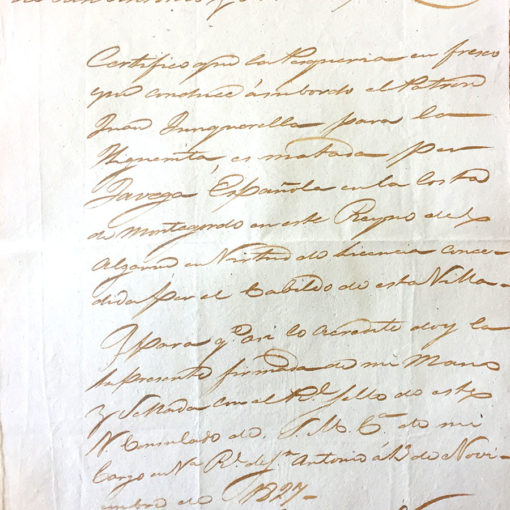 Certifico que la Pesqueria en fresco
que conduce á su bordo el Patron
Juan Junquerella para la
Higuerita, es matada por
Javega Española en la Costa
de Montegordo en este Reyno del
Algarve en Virtud de Licencia conce-
dida por el Cabildo de esta Villa-
Y para q.e asi lo acredite doy la
la presente firmada de mi Mano
y Sellada con el R.l Sello de este
V. Consulado de S. M. C.a de mi
Cargo en V.a R.l de S.n Antonio á de Novi-
embre de 1827-